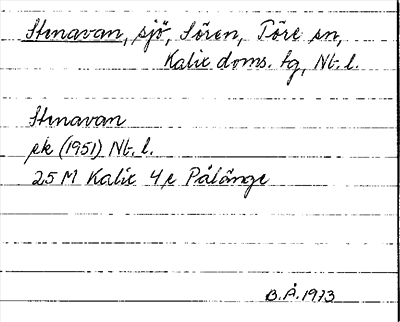 Stenavan, sjö, Sören, Töre sn,
Kalix doms. tg, Nb. l.
Stenavan
ek (1951) Nb. l.
25 M Kalix 4 c Pålänge
B.Å. 1973